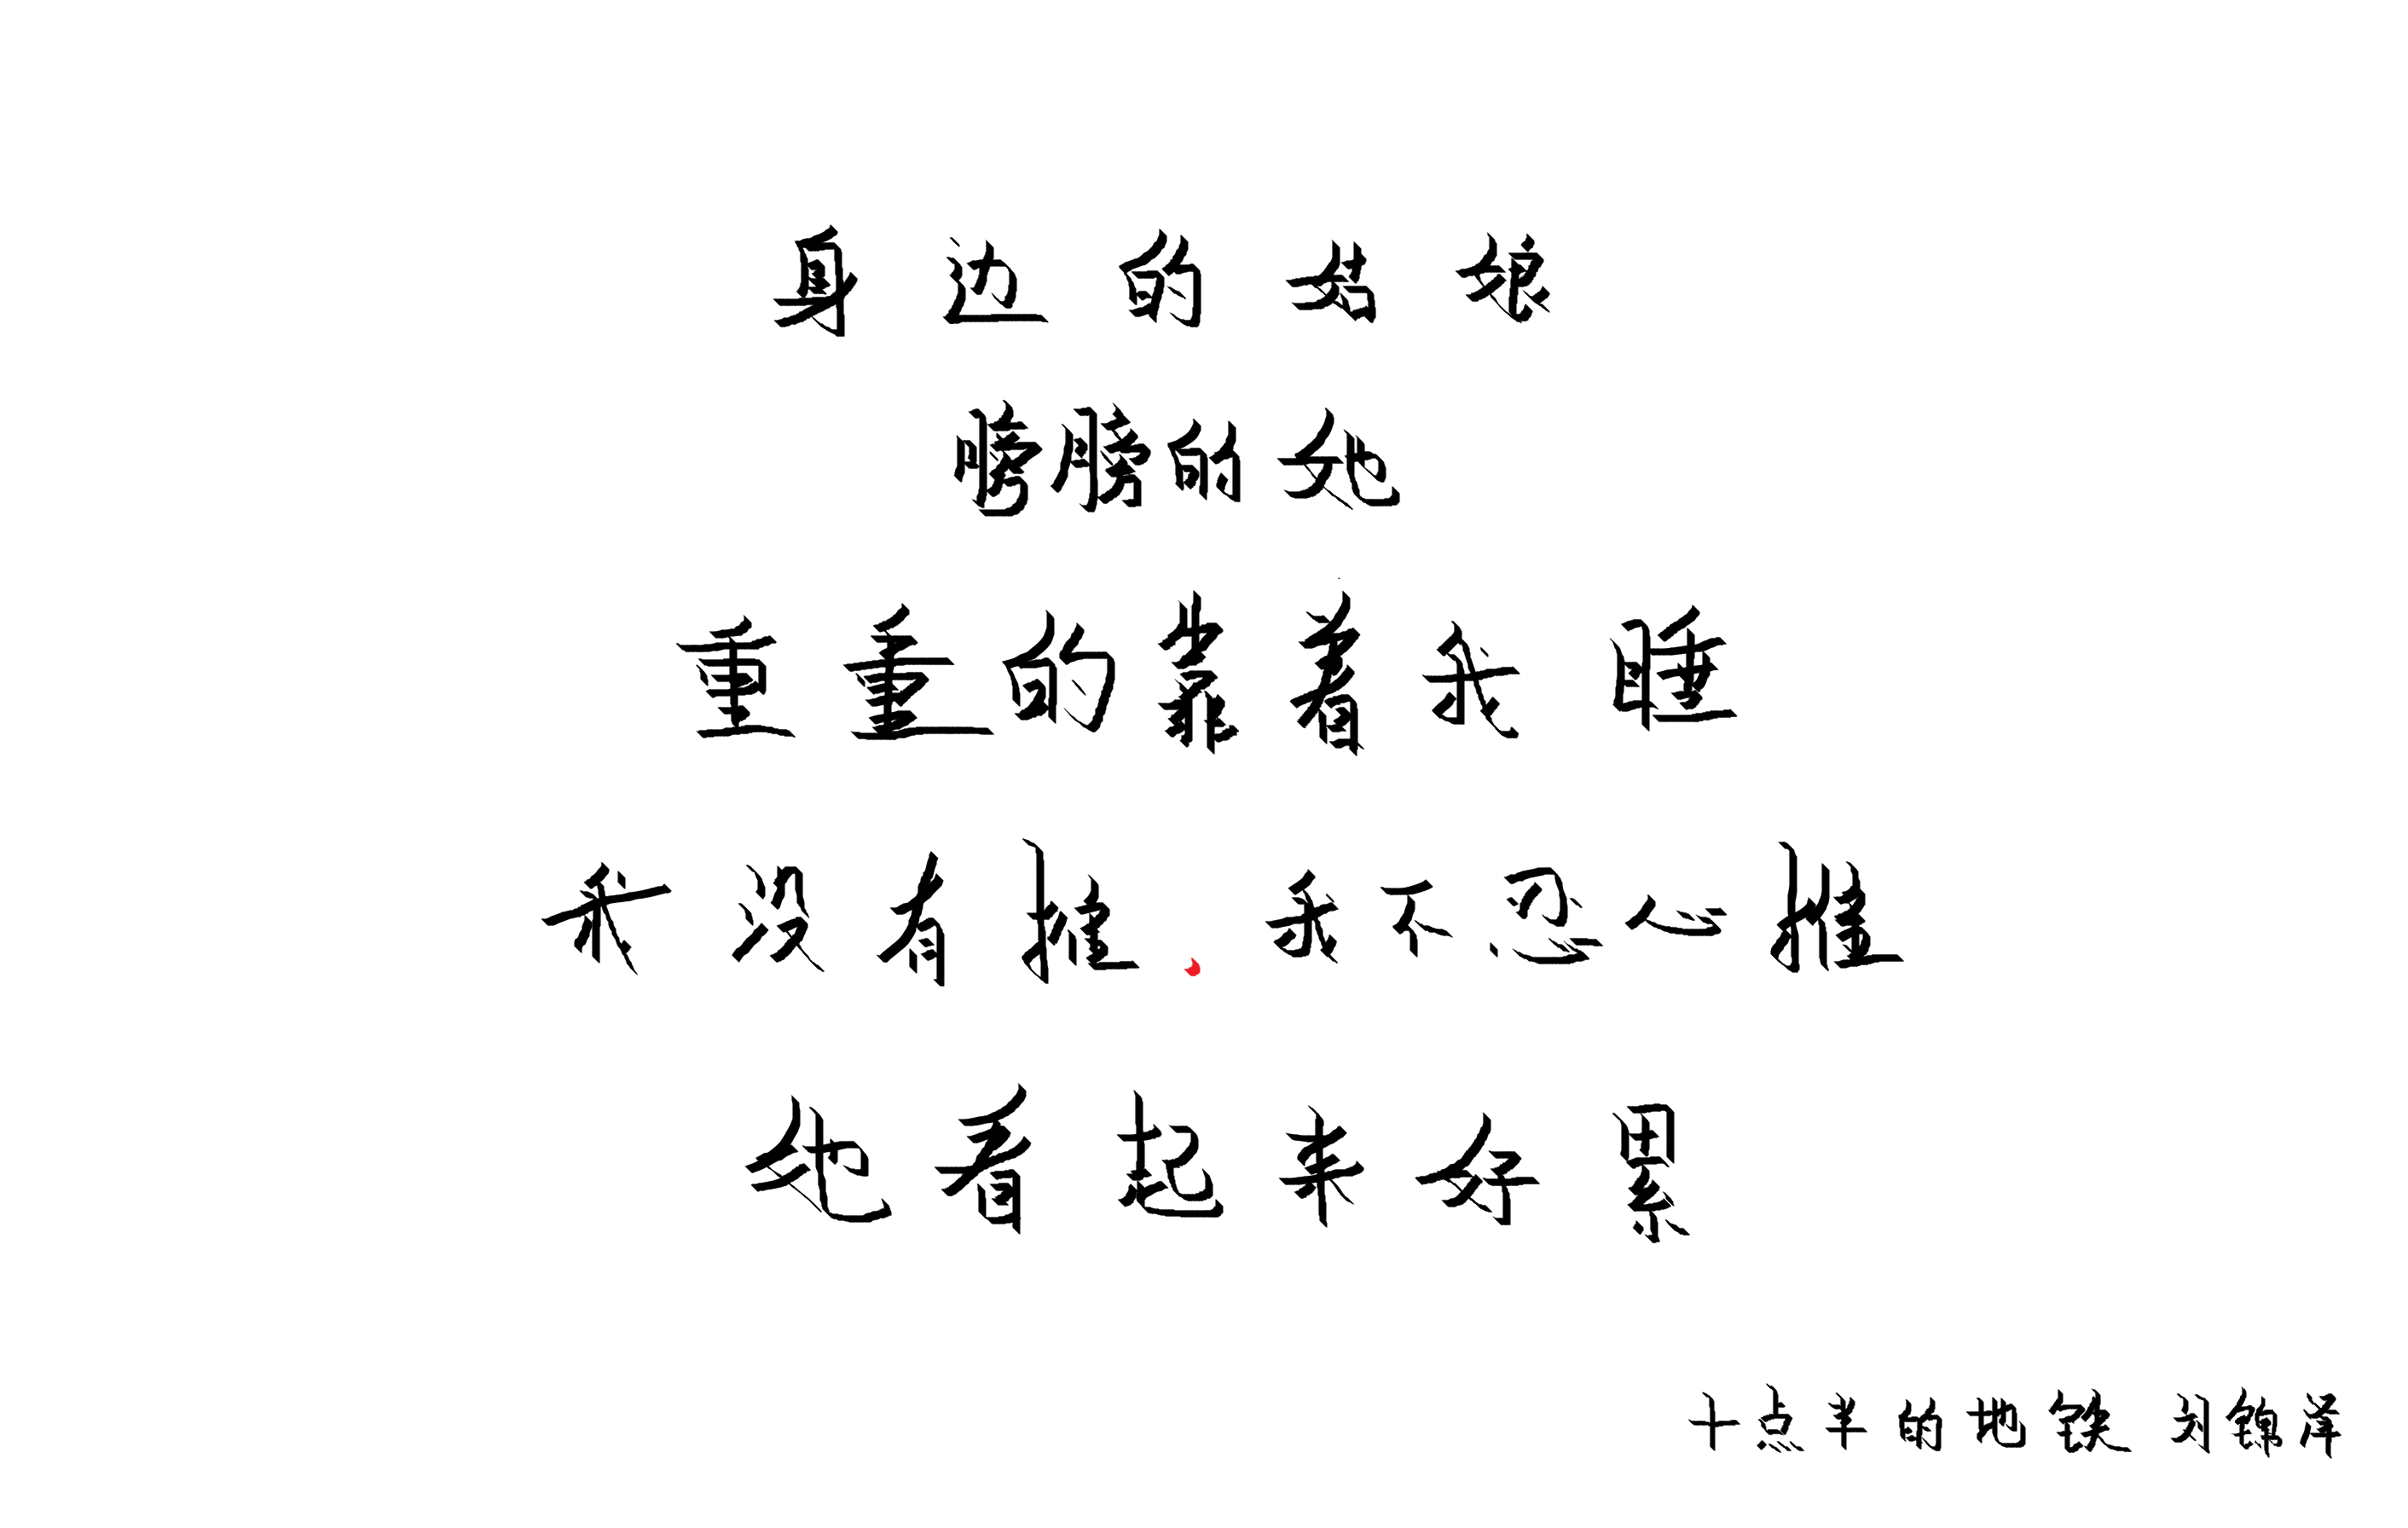 身边的姑娘
膀膀的她
重重的靠着我睡
我没有推.我不忍心推
她看起来好累
十点半的地铁 刘锦泽